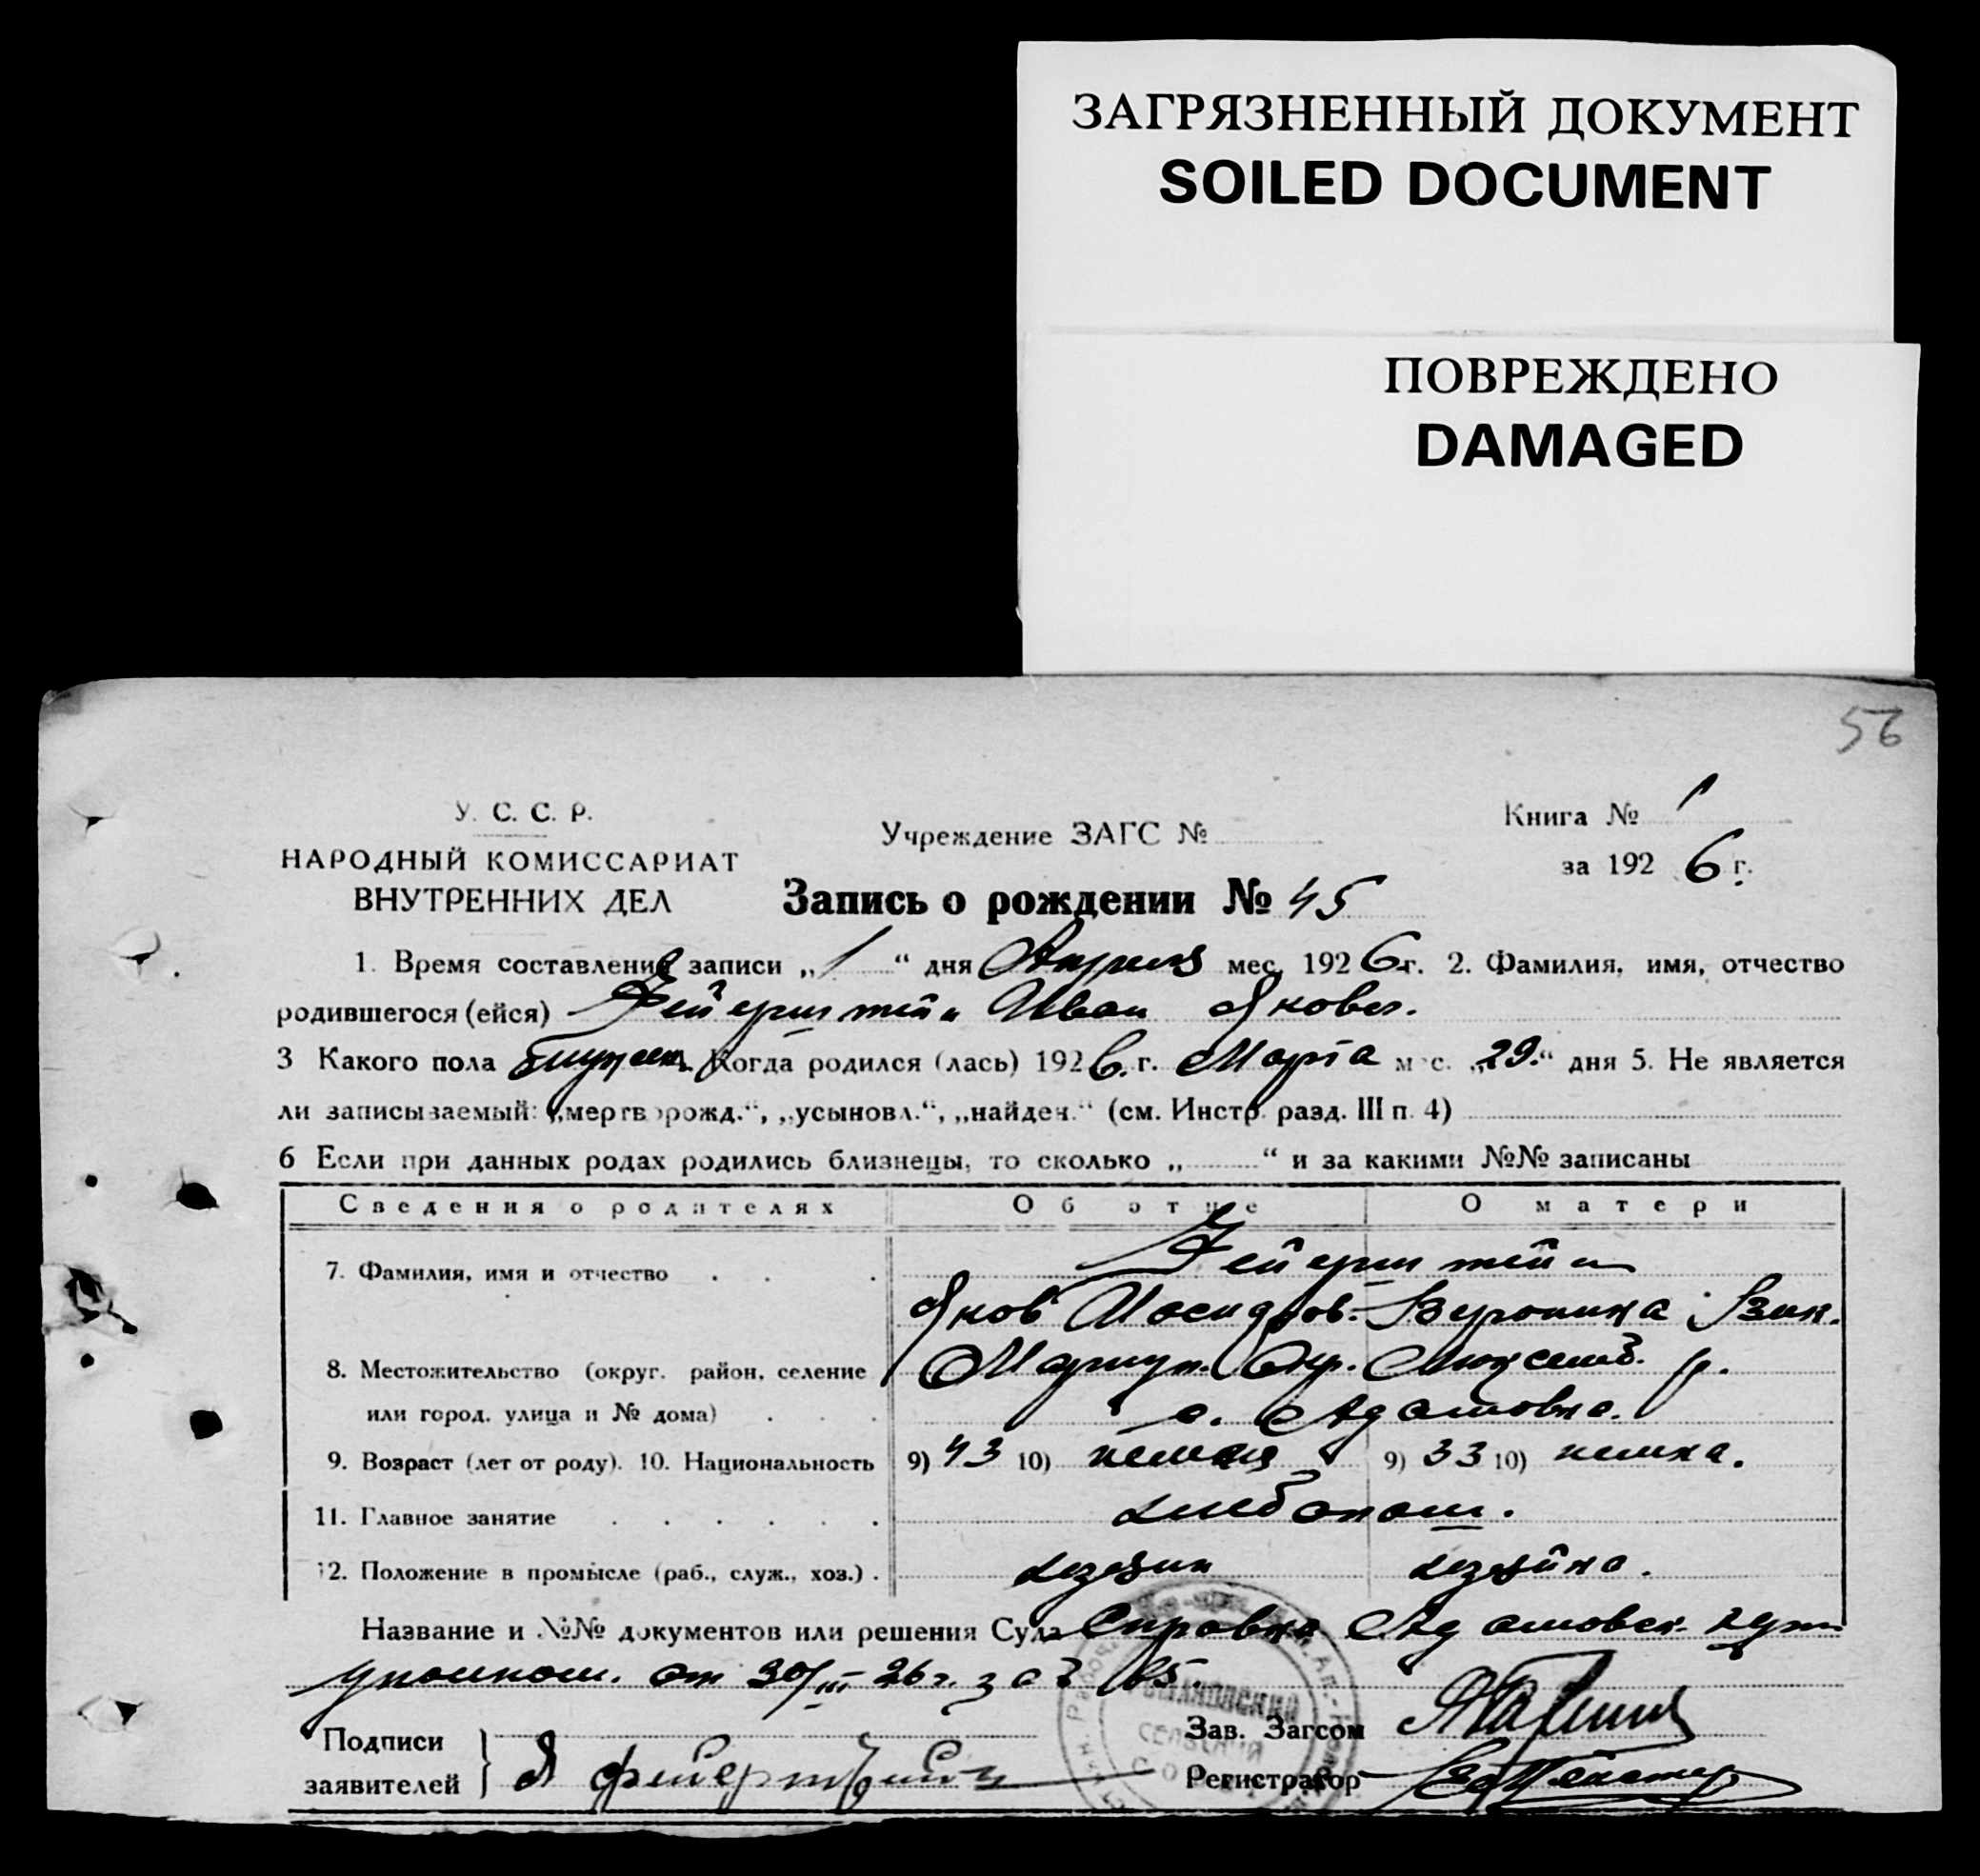 ЗАГРЯЗНЕННЫЙ ДОКУМЕНТ
SOILED DOCUMENT
ПОВРЕЖДЕНО
DAMAGED
56
У. С. С. Р.
НАРОДНЫЙ КОМИССАРИАТ
ВНУТРЕННИХ ДЕЛ
Учреждение ЗАГС №
Книга № 1
за 1926 г.
Запись о рождении № 45
1. Время составления записи „1“ дня Апреля мес. 1926 г. 2. Фамилия, имя, отчество
родившегося (ейся) Фейерштейн Иван Яковл.
3 Какого пола мужск. Когда родился (лась) 1926. г. Марта мес. „29.“ дня 5. Не является
ли записываемый: „мертворожд.“, „усыновл.“, „найден.“ (см. Инстр. разд. III п. 4)
6 Если при данных родах родились близнецы, то сколько „ “ и за какими №№ записаны
Сведения о родителях Об отце О матери
7. Фамилия, имя и отчество . . . Фейерштейн
Яков Вероника
8. Местожительство (округ. район, селение Мариуп. Окр. р.
или город, улица и № дома) . . . с. Адамовка.
9. Возраст (лет от роду). 10. Национальность 9) 43 10) немец 9) 33 10) немка.
11. Главное занятие . . . . . . хлебопаш.
12. Положение в промысле (раб., служ., хоз.) . хозяин хозяйка.
Название и №№ документов или решения Суда Справка Адамовск.
уполном. от 30/III 26 г. за № 15.
СЕЛЬСКИЙ
Подписи
заявителей
Я Фейерштейн
Зав. Загсом
Регистратор